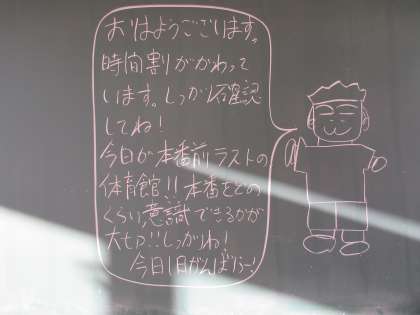 おはようございます。
時間割がかわって
います。しっかり確認
してね!
今日が本番前ラストの
体育館!!本番をどの
くらい意識できるかが
大切!!しっかりね!
今日1日がんばろう!